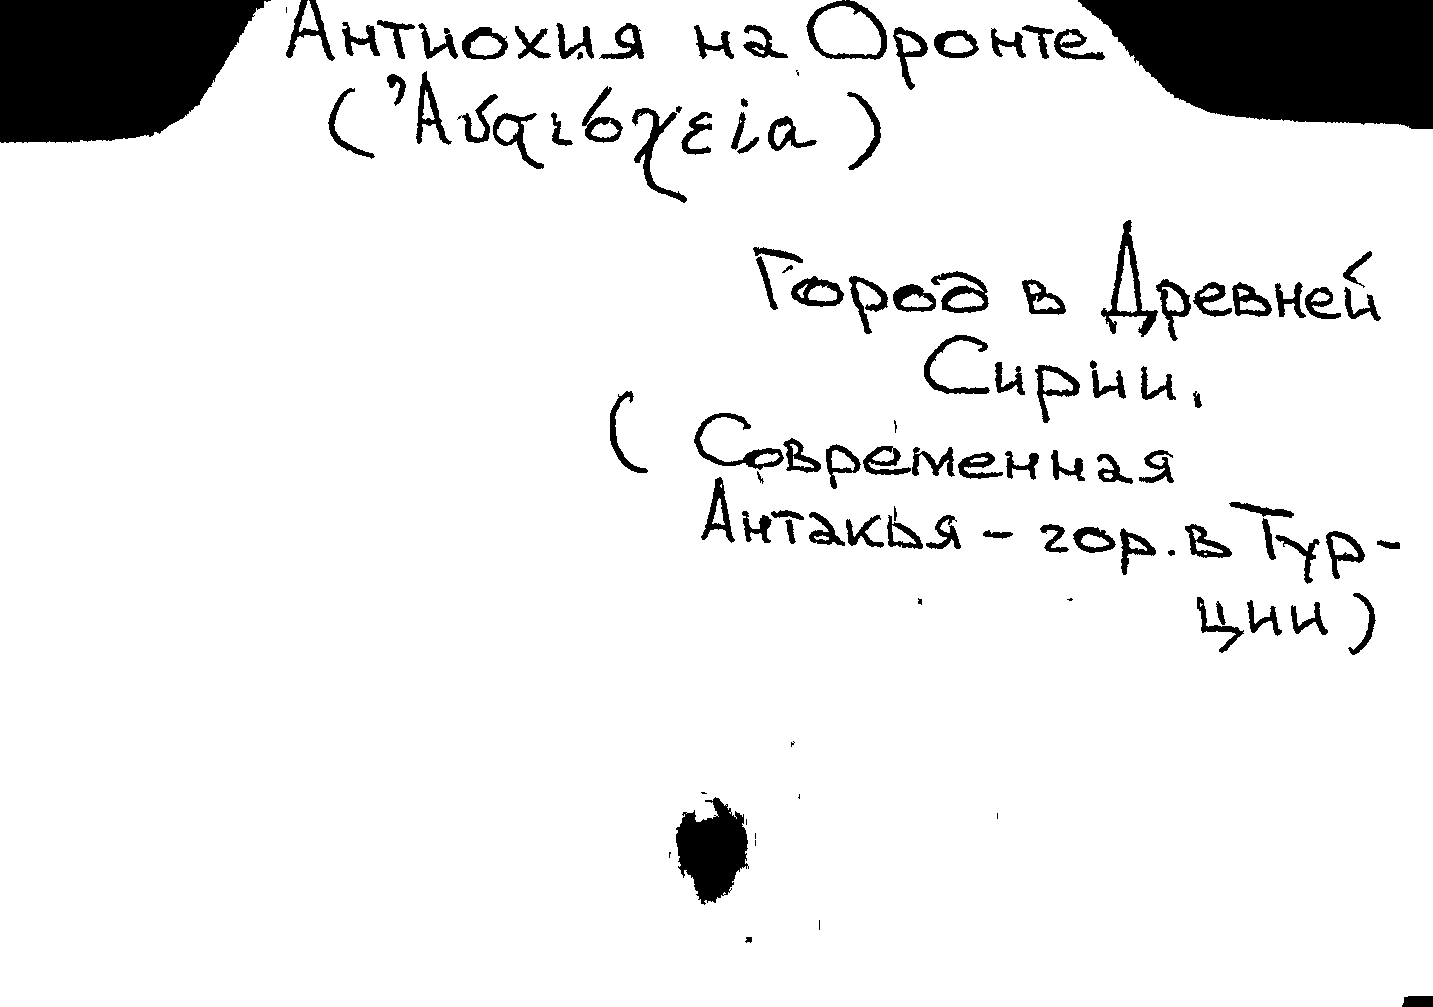 Антиохия на Оронте
(Ἀντιόχεία)
Город в Древней
Сирии.
( Современная
Антакья - гор. в Тур-
ции)